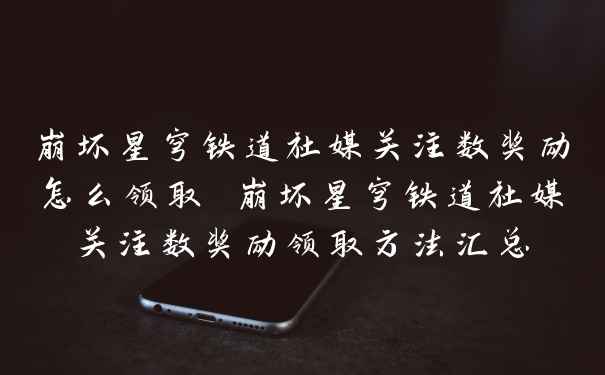 崩坏星穹铁道社媒关注数奖励
怎么领取 崩坏星穹铁道社媒
关注数奖励领取方法汇总